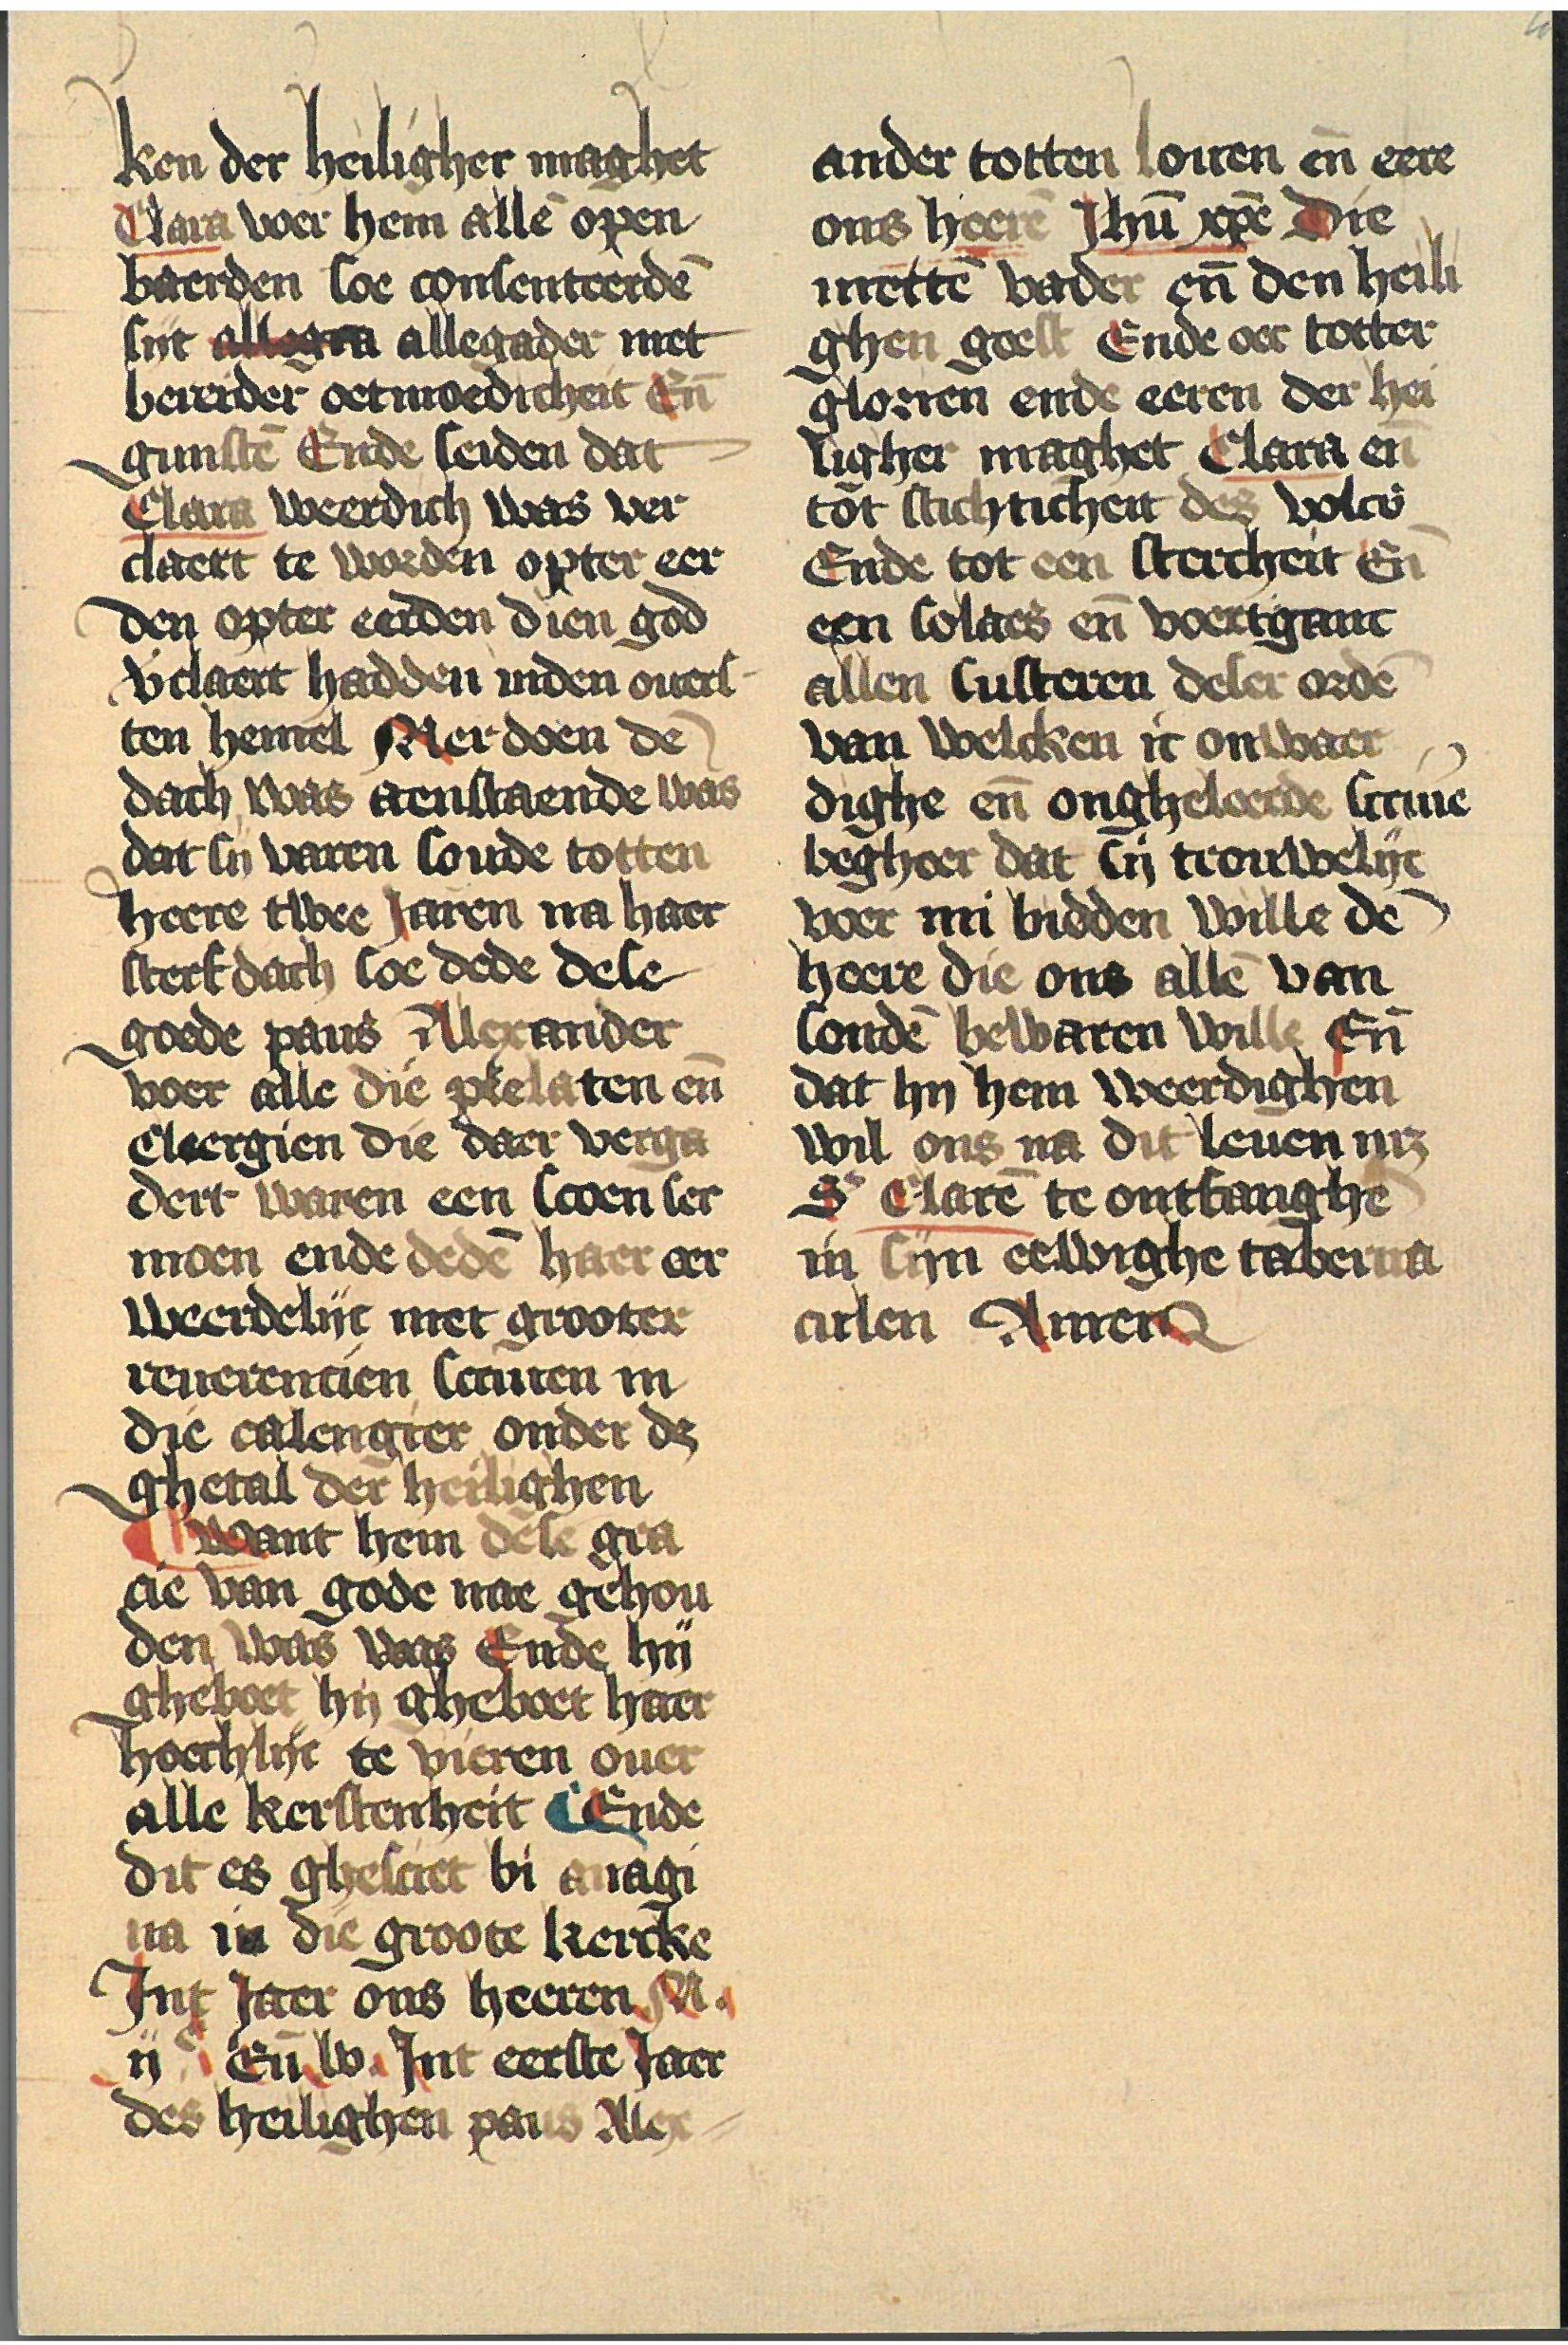 ken der heiligher maghet
Clara voer hem allē open
baerden soe consenteerdē
sijt allegra allegader met
beierder oetmoedicheit Eñ
gunstē Ende seiden dat
Clara weerdich was ver
claert te worden opter eer
den opter eerden dien god
v̄claert hadden inden ouers
ten hemel Mer doen dē
dach was aenstaende was
dat sij varen soude totten
heere twee Jaren na haer
sterfdach soe dede dese
goede paus Allexander
voer alle die prelaten eñ
cleergien die daer verga
dert waren een scoen ser
moen ende dedē haer eer
weerdelijc met grooter
reuerencien scriuen in
die calengier onder dz
ghetal der heilighen
want hem dese gra
cie van gode nae gehou
den was was Ende hij
gheboet hij gheboet haer
hoechlijc te vieren ouer
alle kerstenheit Ende
dit es ghesciet bi anagi
na in die groote kercke
Int Jaer ons heeren M.
ij c Eñ lv. Int eerste Jaer
des heilighen paus Alex
ander totten louen eñ eere
ons heerē Jhū xpē Die
mettē vader eñ den heili
ghen geest Ende oec totter
glorien ende eeren der hei
ligher maghet Clara eñ
tot stichticheit des volcs
Ende tot een stercheit Eñ
een solaes eñ voertganc
allen susteren deser ordē
van welcken ic onwaer
dighe eñ ongheleerde scriue
begheer dat sij trouwelijc
voer mi bidden wille dē
heere die ons allē van
sondē bewaren wille Eñ
dat hij hem weerdighen
wil ons na dit leuen mz
Sr Clarē te ontfanghē
in sijn eewighe taberna
culen Amen